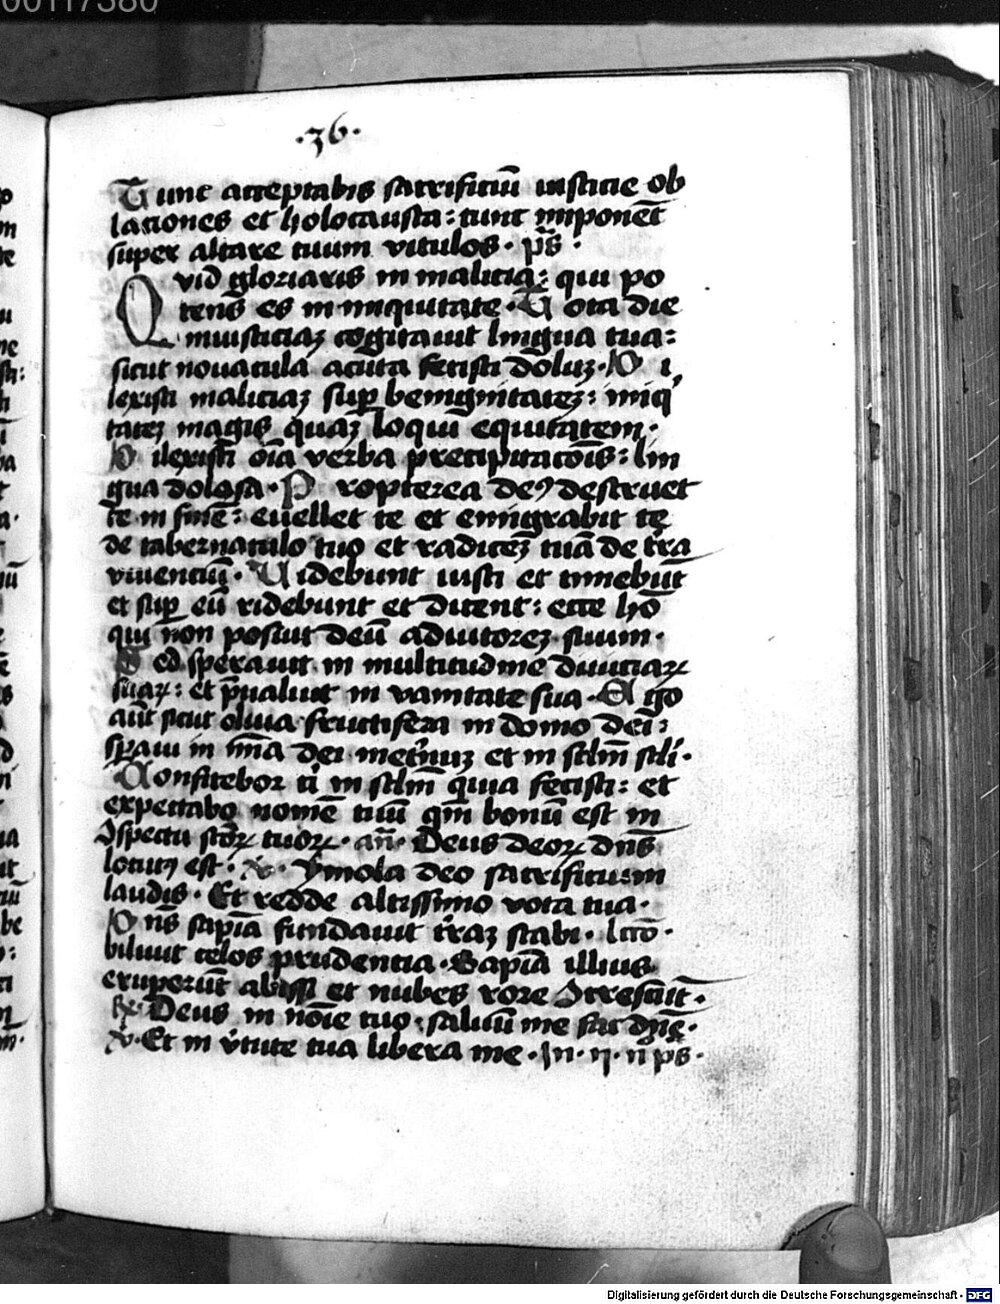 00117380
·36·
Tunc acceptabis sacrificiū iusticie ob
laciones et holocausta: tunc imponēt
super altare tuum vitulos· p̄s·
Qvid gloriaris in malicia: qui po
tens es in iniquitate· Tota die
iniusticiaz cogitauit lingua tua:
sicut nouacula acuta fecisti doluz· Di
lexisti maliciaz sup benignitatez: iniq
tatez magis quaz loqui equitatem·
Dilexisti oīa verba precipitacōis: lin
gua dolosa· Propterea deꝰ destruet
te in finē: euellet te et emigrabit te
de tabernaculo tuo et radicez tuā de tr̄a
viuenciū· Uidebunt iusti et timebūt
et sup eū ridebunt et dicent: ecce hō
qui non posuit deū adiutorez suum·
Sed sperauit in multitudine diuiciaꝝ
suaꝝ: et p̄ualuit in vanitate sua· Ego
aūt sicut oliua fructifera in domo dei:
sp̄aui in mīa dei meternuz et in sclm̄ scli·
Confitebor ti in sclm̄ quia fecisti: et
expectabo nomē tuū qm̄ bonū est in
ↄspectu sc̄oꝝ tuoꝝ· an̄· Deus deoꝝ dn̄s
locutꝰ est· ℣· Ymola deo sacrificium
laudis· Et redde altissimo vota tua·
Dn̄s sapīa fundauit tr̄az stabi· lcīo·
biliuit celos prudencia· Sapīa illius
eruperūt abissi et nubes rore ↄcrescūt·
℟ Deus in noīe tuo: saluū me fac dn̄e·
℣· Et in v̄tute tua libera me· In· ij· n̄ ps·
Digitalisierung gefördert durch die Deutsche Forschungsgemeinschaft - DFG